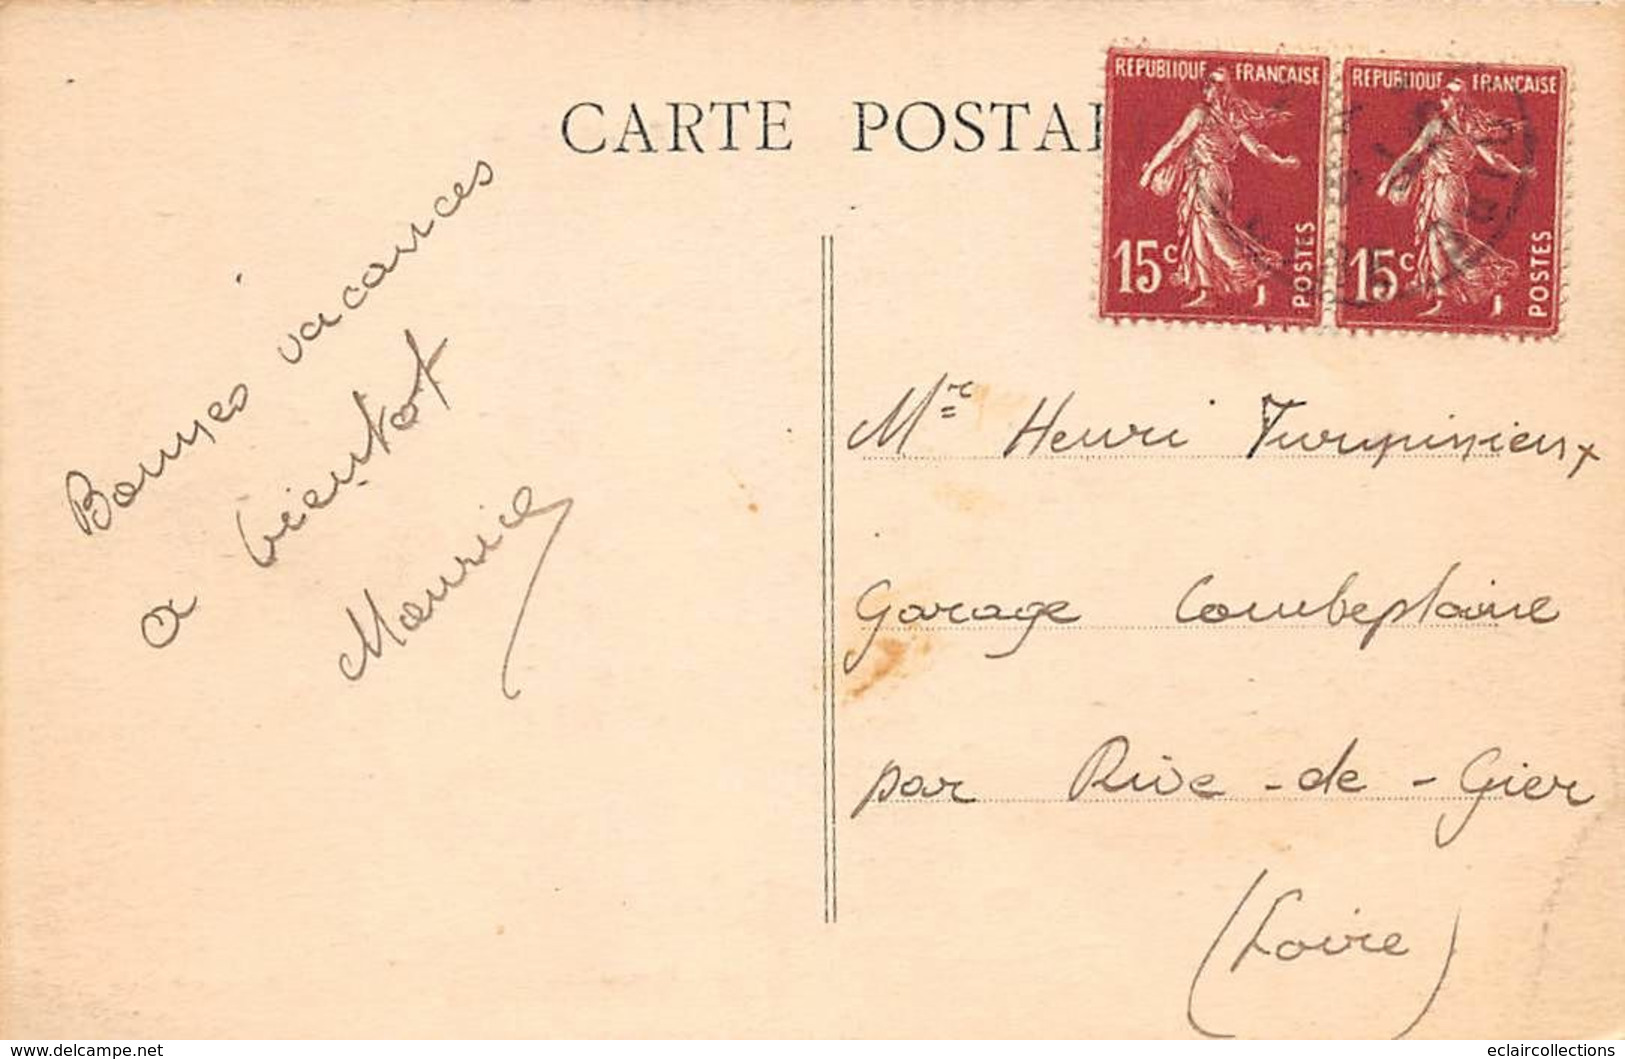 CARTE POSTAL
REPUBLIQUE FRANÇAISE
15c
POSTES
REPUBLIQUE FRANÇAISE
15c
POSTES
Bonnes vacances
a bientot
Maurice
Mr Henri
Garage Combeplaine
par Rive-de-Gier
(Loire)
www.delcampe.net
eclaircollections